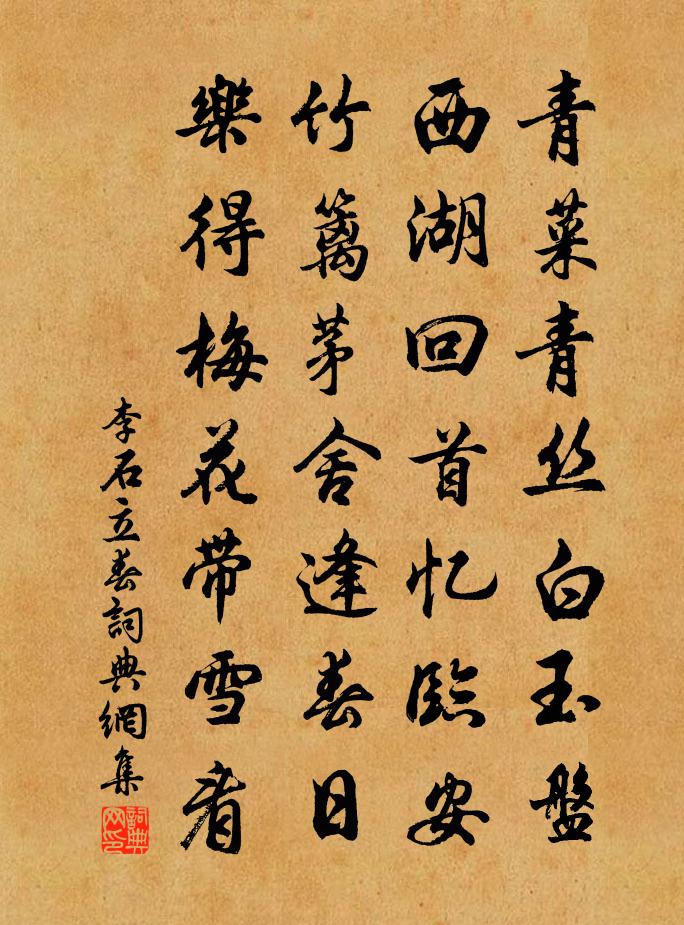 青菜青丝白玉盤
西湖回首忆臨安
竹篱茅舍逢春日
樂得梅花带雪看
李石立春詞典網集
詞典网印